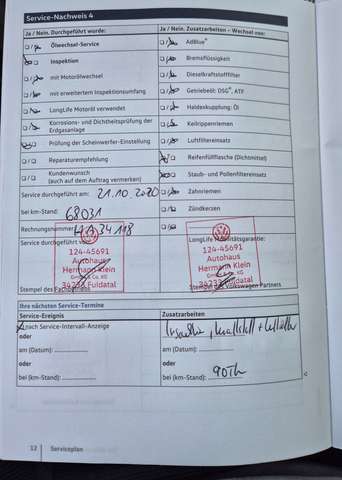 Service-Nachweis 4
Ja / Nein. Durchgeführt wurde:
Ölwechsel-Service
Inspektion
mit Motorölwechsel
mit erweitertem Inspektionsumfang
LongLife Motoröl verwendet
Korrosions- und Dichtheitsprüfung der
Erdgasanlage
Prüfung der Scheinwerfer-Einstellung
Reparaturempfehlung
Kundenwunsch
(auch auf dem Auftrag vermerken)
Service durchgeführt am: 21.10.2020
bei km-Stand: 68031
Rechnungsnummer: 34118
Service durchgeführt von:
124-45691
Autohaus
Hermann Klein
34233 Fuldatal
Stempel des
Ja / Nein. Zusatzarbeiten – Wechsel von:
AdBlue®
Bremsflüssigkeit
Dieselkraftstofffilter
Getriebeöl: DSG®, ATF
Haldexkupplung: Öl
Keilrippenriemen
Luftfiltereinsatz
Reifenfüllflasche (Dichtmittel)
Staub- und Pollenfiltereinsatz
Zahnriemen
Zündkerzen
LongLife Mobilitätsgarantie:
124-45691
Autohaus
Hermann Klein
Fuldatal
Stempel des Volkswagen Partners
Ihre nächsten Service-Termine
Service-Ereignis
nach Service-Intervall-Anzeige
oder
am (Datum):
oder
bei (km-Stand):
Zusatzarbeiten
oder
am (Datum):
oder
bei (km-Stand): 90Th
12 Serviceplan